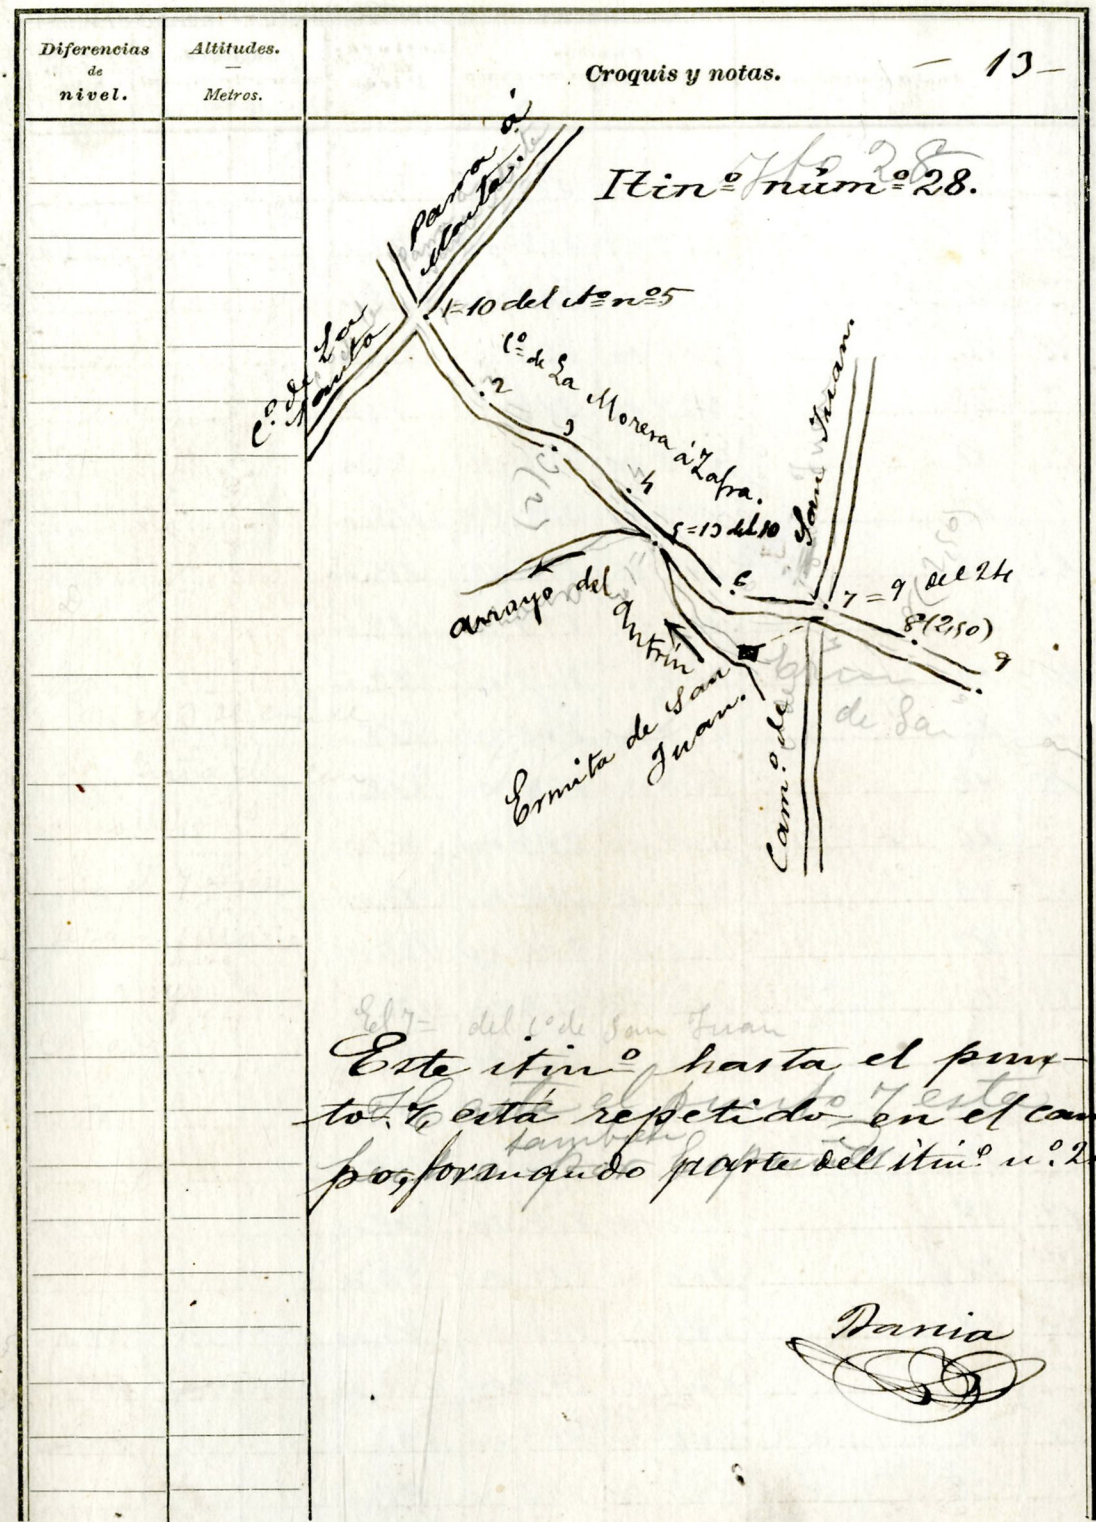 Diferencias de nivel.
Altitudes.
Metros.
Croquis y notas.
- 13 -
Itinº númº 28.
Parra á
Cº de La
1=10 del itº nº 5
2
Cº de La Morera á Zafra.
3
4
5=13 del 10
6
7=9 del 24
8 (2,50)
9
arroyo del Entrín
Ermita de San Juan.
Camº de San Juan.
El 7 = del cº de San Juan
Este itinº hasta el pun-
to 7 está repetido en el cam
po, formando parte del itinº nº 2